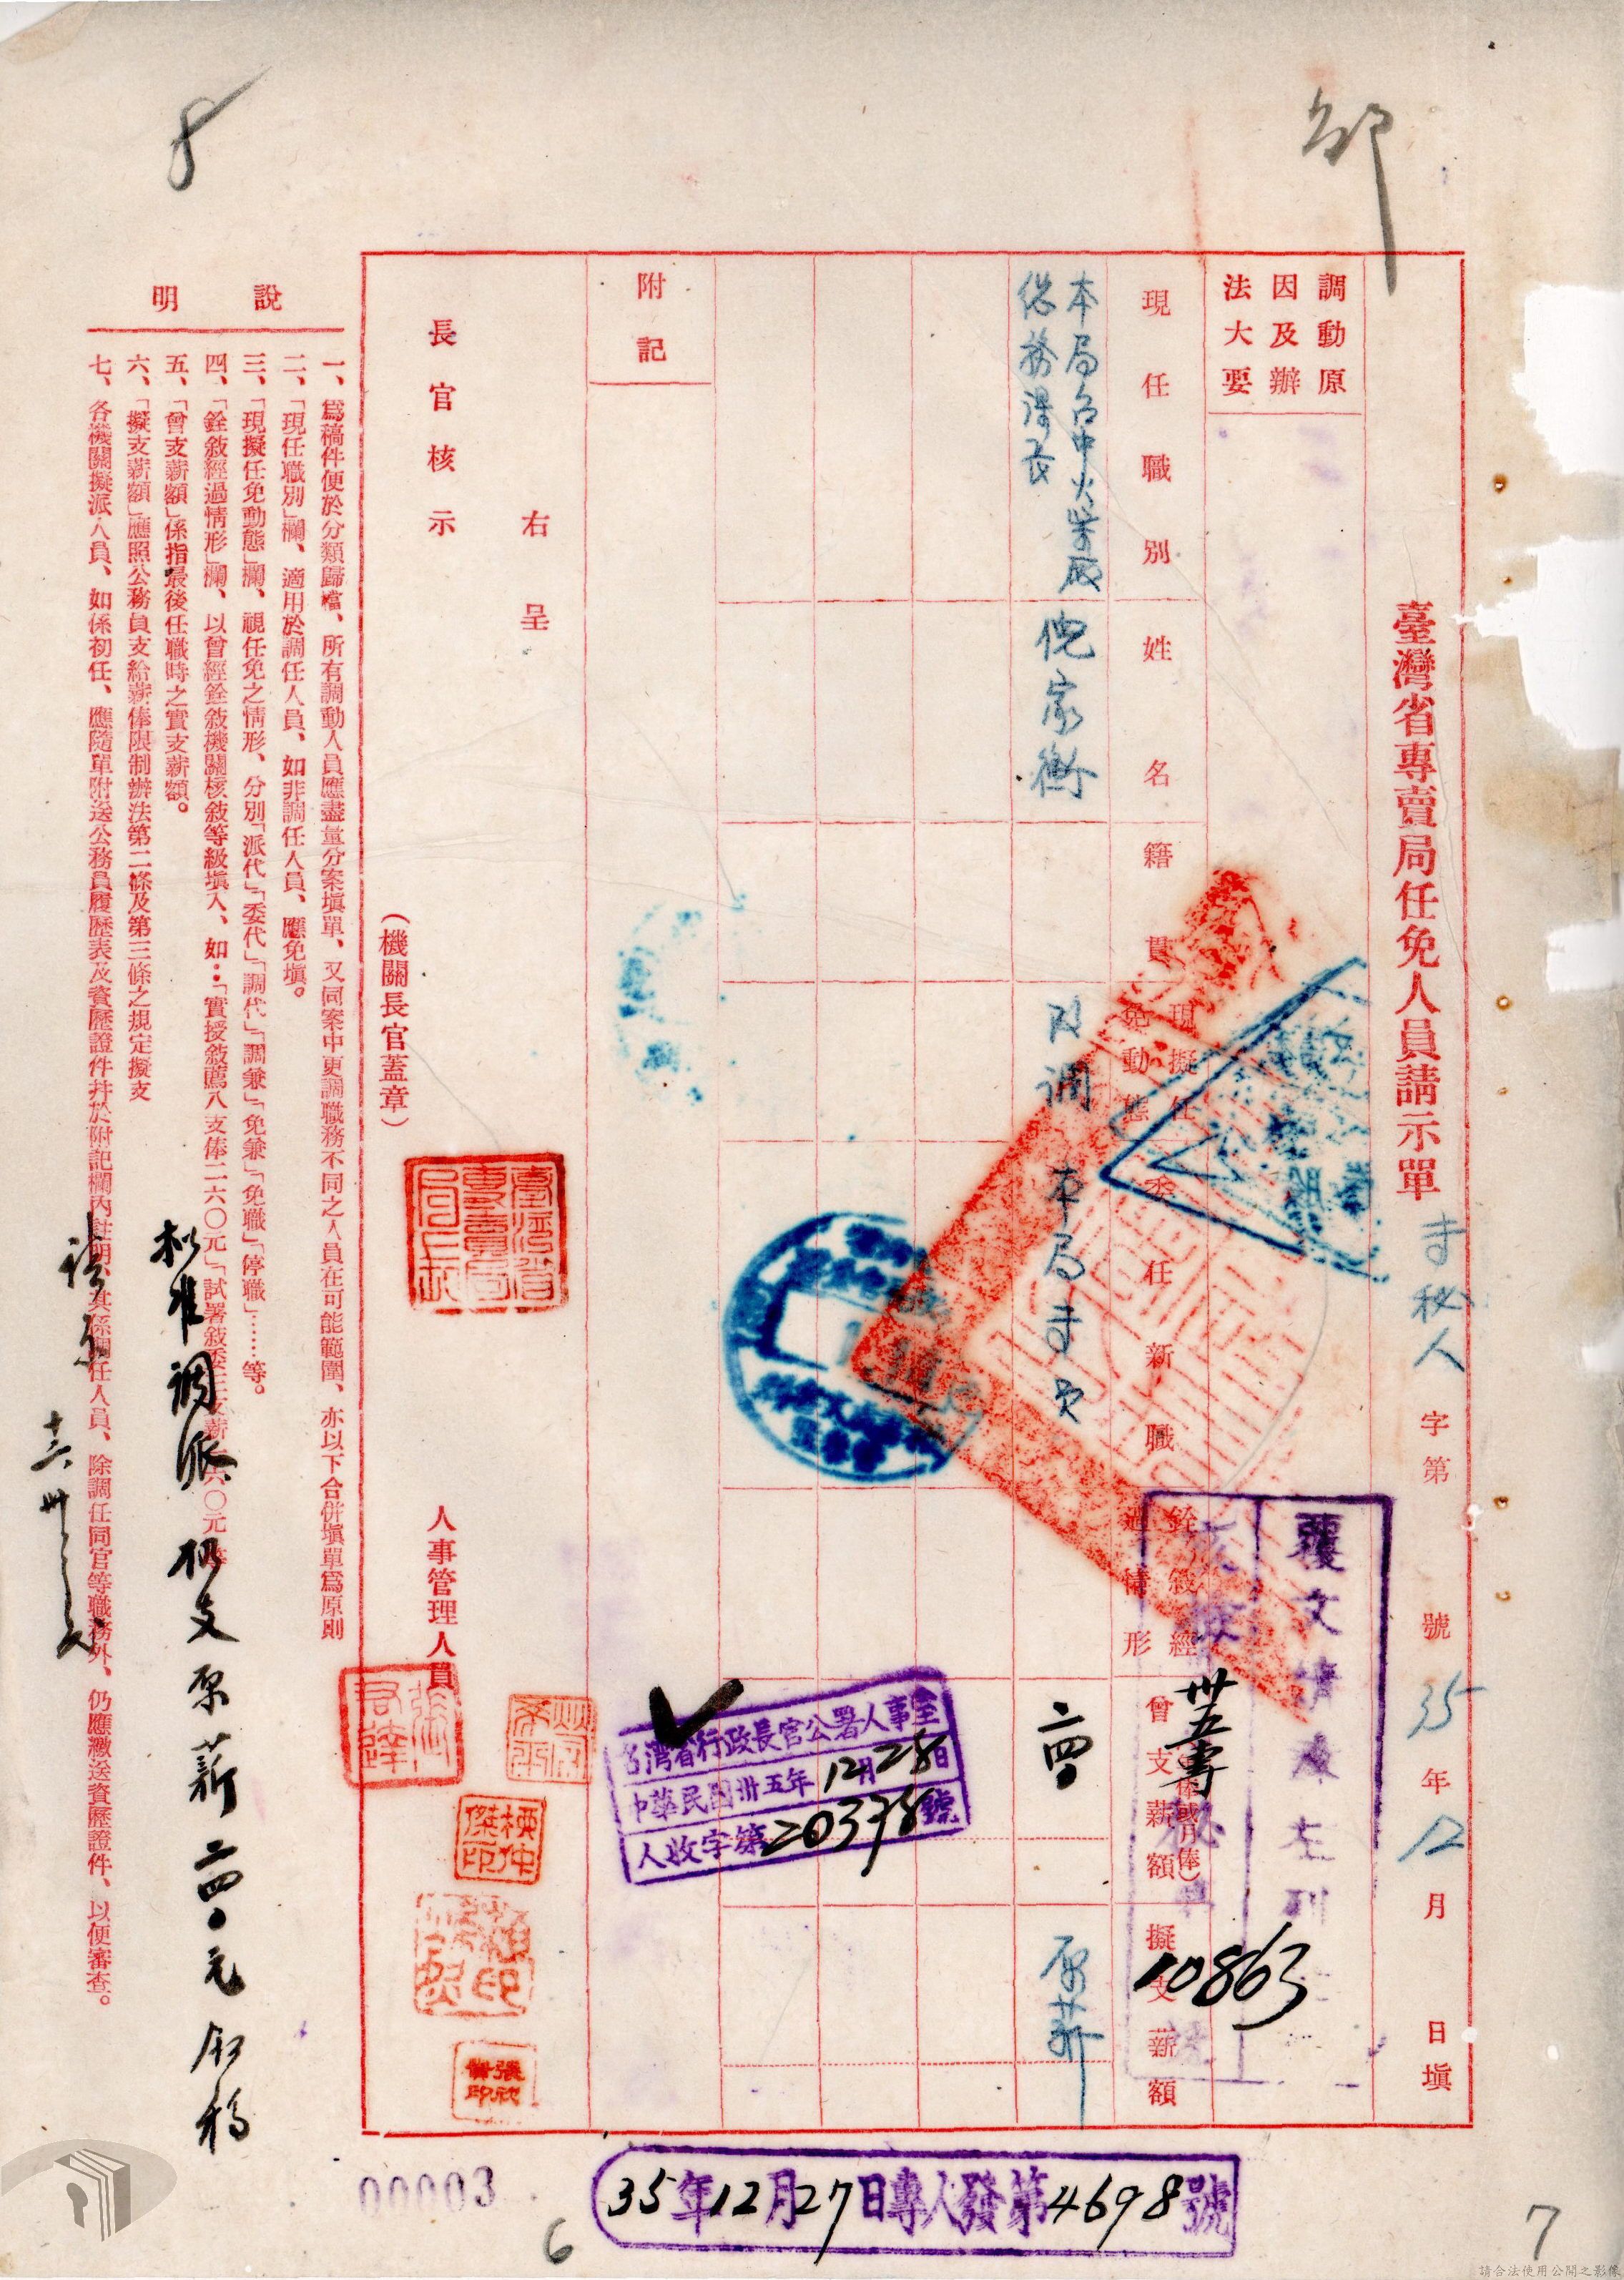 邹
8
臺灣省專賣局任免人員請示單
專秘人字第　號35年12月　日塡
調動原因及辦法大要
現任職別
姓名
籍貫
現擬任免動態
委任新職
銓敍經過情形
曾支薪額
擬支薪額
本局台中火柴厰
總務課長
倪家衡
改調
本局專員
二四〇
原薪
覆文請
卅五專
10863
附記
右呈
長官核示
(機關長官蓋章)
人事管理人員
台灣省行政長官公署人事室
中華民國卅五年12月28日
人收字第20378號
說明
一、爲稿件便於分類歸檔、所有調動人員應盡量分案塡單、又同案中更調職務不同之人員在可能範圍、亦以下合併塡單爲原則
二、「現任職別」欄、適用於調任人員、如非調任人員、應免塡。
三、「現擬任免動態」欄、視任免之情形、分別「派代」「委代」「調代」「調兼」「免兼」「免職」「停職」……等。
四、「銓敍經過情形」欄、以曾經銓敍機關核敍等級塡入、如：「實授敍薦八支俸二六〇元」「試署敍委
五、「曾支薪額」係指最後任職時之實支薪額。
六、「擬支薪額」應照公務員支給薪俸限制辦法第二條及第三條之規定擬支
七、各機關擬派人員、如係初任、應隨單附送公務員履歷表及資歷證件幷於附記欄內註明、其係調任人員、除調任同官等職務外、仍應繳送資歷證件、以便審查。
擬准調派仍支原薪二四〇元
請示
臺灣省專賣局
35年12月27日專人發第4698號
00003
6
7
請合法使用公開之影像